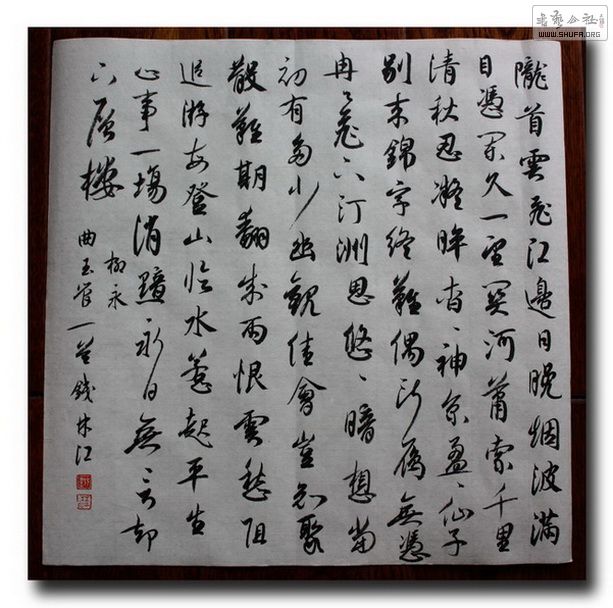 隴首雲飛江邊日晚烟波滿
目憑闌久一望關河蕭索千里
清秋忍凝眸杳、神京盈、仙子
別來錦字終難偶斷鴈無憑
冉、飛下汀洲思悠、暗想當
初有多少幽觀佳會豈知聚
散難期翻成雨恨雲愁阻
追游每登山臨水惹起平生
心事一場消黯永日無言却
下層樓
柳永
曲玉管一首錢林江
書藝公社
WWW.SHUFA.ORG